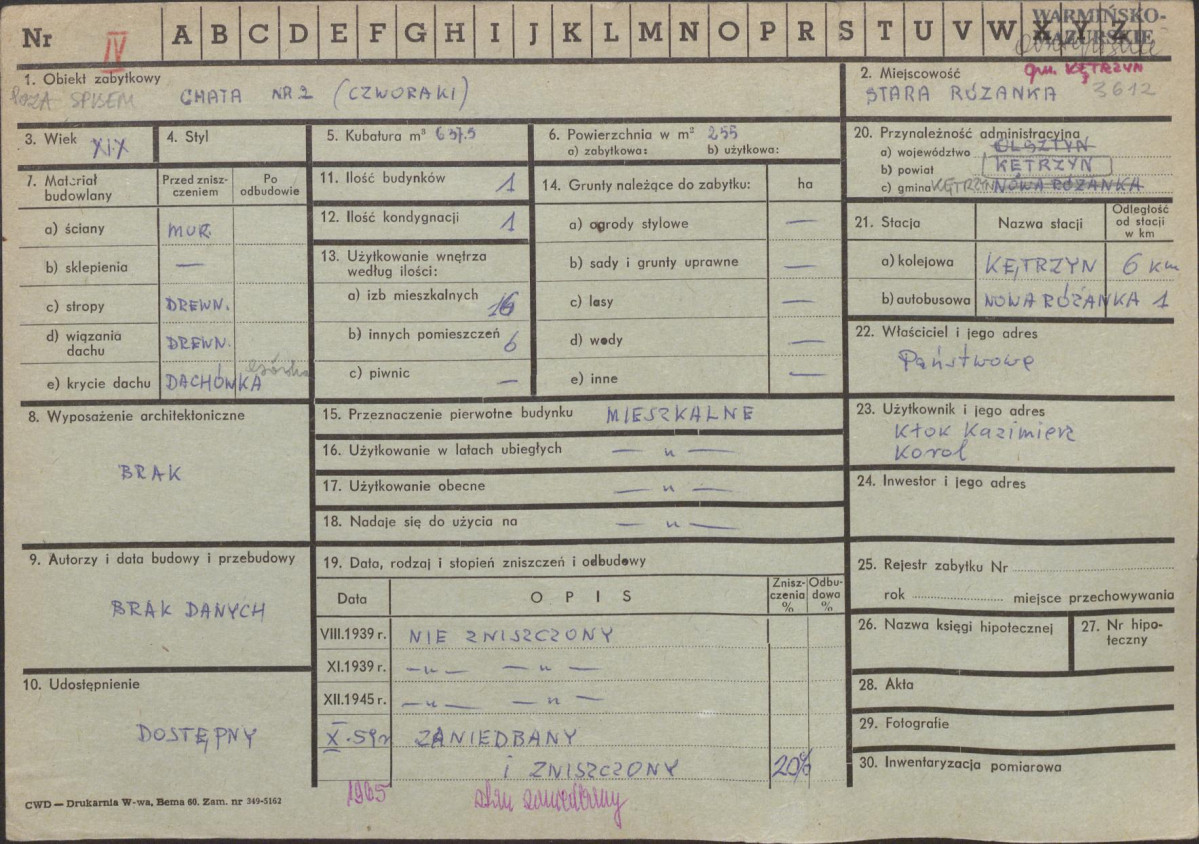 Nr IV A B C D E F G H I J K L M N O P R S T U V W X Y Z
WARMIŃSKO-
MAZURSKIE
1. Obiekt zabytkowy
POZA SPISEM CHATA NR 2 (CZWORAKI)
2. Miejscowość gm. KĘTRZYN
STARA RÓŻANKA 3612
3. Wiek XIX
4. Styl
5. Kubatura m³ 637.5
6. Powierzchnia w m² 255
a) zabytkowa: b) użytkowa:
20. Przynależność administracyjna
a) województwo OLSZTYN
b) powiat KĘTRZYN
c) gmina KĘTRZYN NOWA RÓŻANKA
7. Materiał budowlany
Przed zniszczeniem
Po odbudowie
a) ściany MUR.
b) sklepienia —
c) stropy DREWN.
d) wiązania dachu DREWN.
e) krycie dachu DACHÓWKA
11. Ilość budynków 1
12. Ilość kondygnacji 1
13. Użytkowanie wnętrza
według ilości:
a) izb mieszkalnych 16
b) innych pomieszczeń 6
c) piwnic —
14. Grunty należące do zabytku: ha
a) ogrody stylowe —
b) sady i grunty uprawne —
c) lasy —
d) wody —
e) inne —
21. Stacja
Nazwa stacji
Odległość
od stacji
w km
a) kolejowa KĘTRZYN 6 km
b) autobusowa NOWA RÓŻANKA 1
22. Właściciel i jego adres
Państwowe
8. Wyposażenie architektoniczne
BRAK
15. Przeznaczenie pierwotne budynku MIESZKALNE
16. Użytkowanie w latach ubiegłych — " —
17. Użytkowanie obecne — " —
18. Nadaje się do użycia na — " —
23. Użytkownik i jego adres
Kłok Kazimierz
Karol
24. Inwestor i jego adres
9. Autorzy i data budowy i przebudowy
BRAK DANYCH
10. Udostępnienie
DOSTĘPNY
19. Data, rodzaj i stopień zniszczeń i odbudowy
Data
O P I S
Zniszczenia %
Odbudowa %
VIII.1939 r. NIE ZNISZCZONY
XI.1939 r. — " — — " —
XII.1945 r. — " — — " —
X.59r ZANIEDBANY
i ZNISZCZONY 20%
1965 stan zaniedbany
25. Rejestr zabytku Nr
rok miejsce przechowywania
26. Nazwa księgi hipotecznej
27. Nr hipoteczny
28. Akta
29. Fotografie
30. Inwentaryzacja pomiarowa
CWD — Drukarnia W-wa, Bema 60. Zam. nr 349-5162